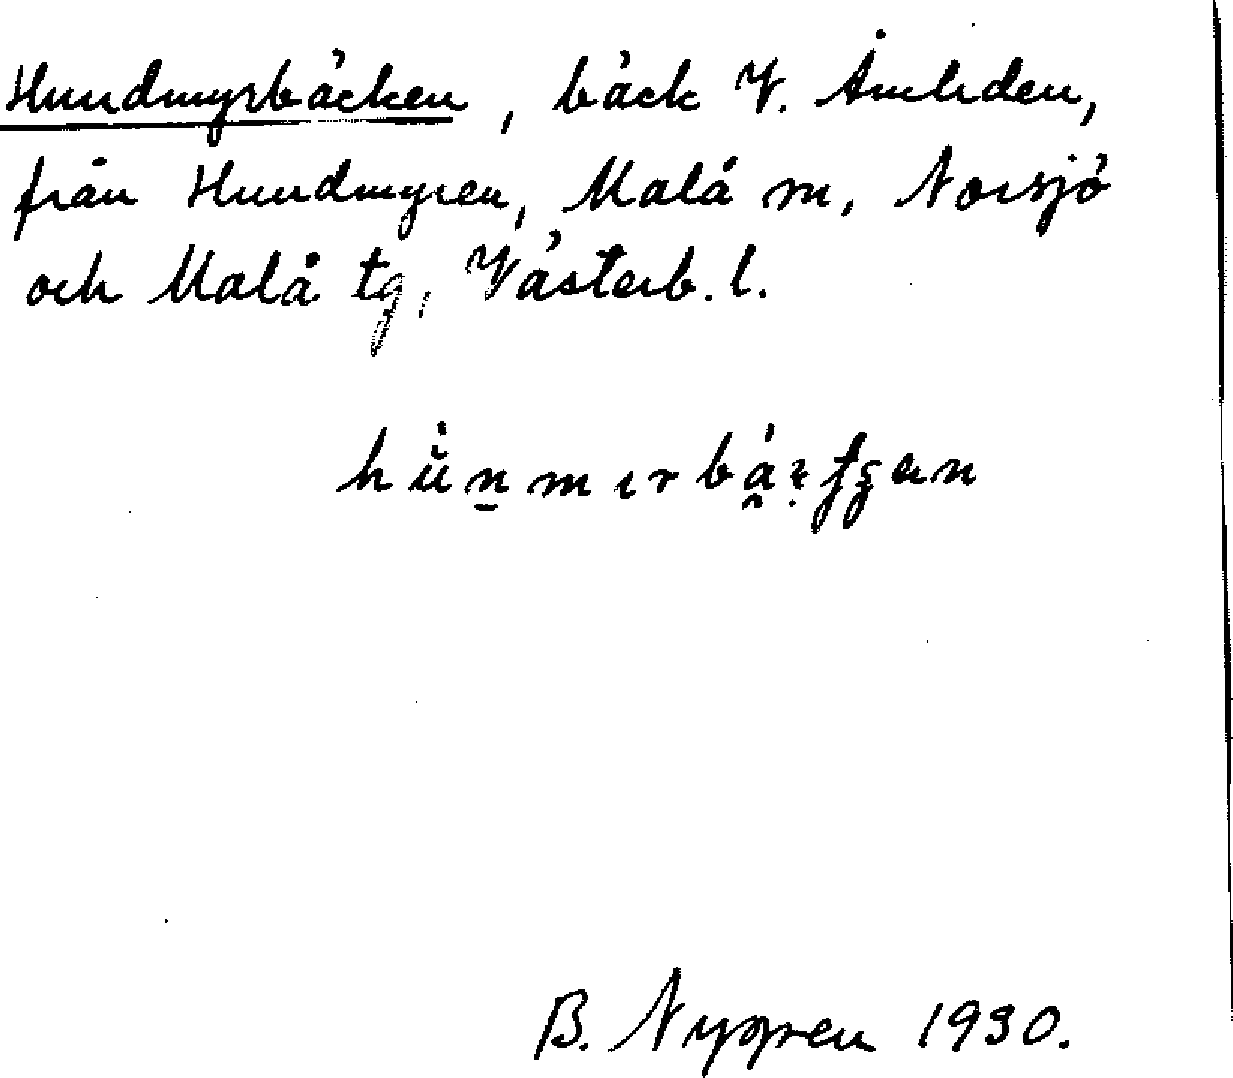 Hundmyrbäcken, bäck V. Åmliden,
från Hundmyren, Malå m, Norsjö
och Malå tg, Västerb. l.
B. Nygren 1930.